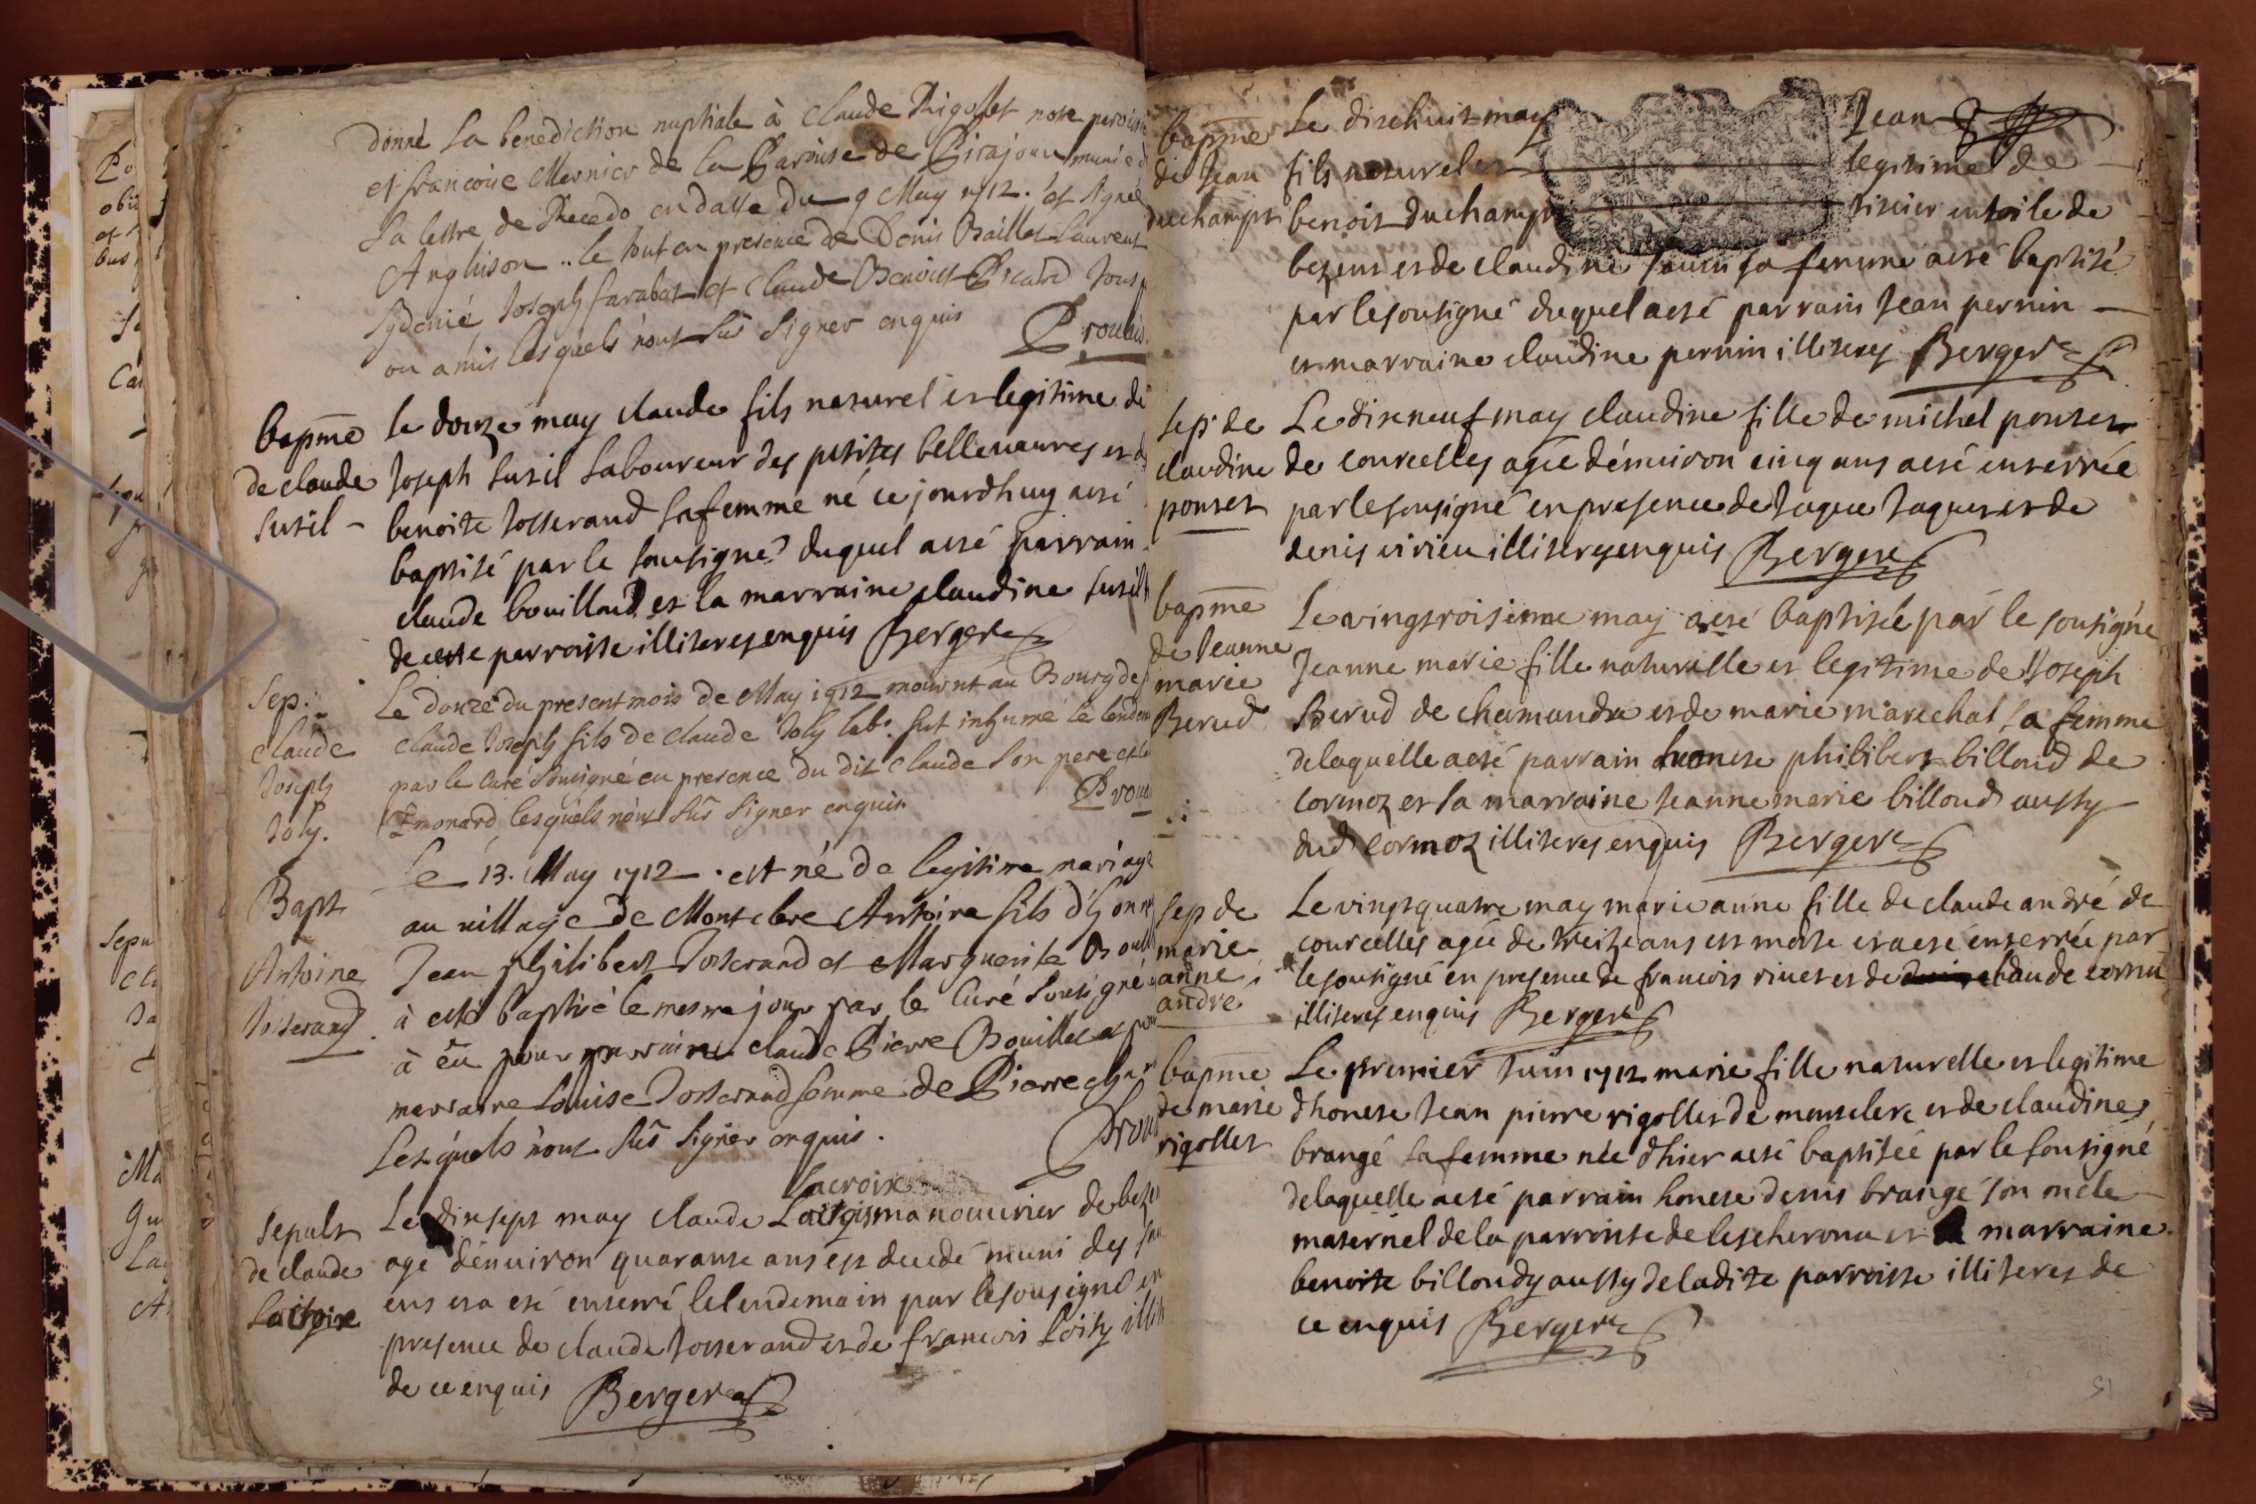 donné La benediction nuptiale à Claude Rigollet nore
et francoise Mernier de la Paroisse de Pirajoux munie
La lettre de Recedo en datte du 9 May 1712. et signé
Anglaison .. le tout en presence de Denis Baillet Laurent
Joseph farabat et Claude Benoist Picard
ou amis lesquels n'ont sûs signer enquis
bapme
de claude
sutil
le douze may claude fils naturel et legitime de
Joseph sutil laboureur des petites bellevavres et
benoite Josserand sa femme né ce jourdhuy a esté
baptisé par le sousigné duquel a esté parrain
claude bouilloud et la marraine claudine sutil
de cette parroisse illiteres enquis Berger
Sep:
Claude
Joseph
Joly.
Le douze du present mois de May 1712 mourut au Bourg de
Claude Joseph fils de Claude Joly lab. fut inhumé le
par le Curé sousigné en presence du dit Claude son pere et
Emonard lesquels n'ont sûs signer enquis
Bapt
Antoine
Josserand
Le 13. May 1712. est né de legitime mariage
au village de Montclere Antoine fils d'
Jean philibert Josserand et Marguerite
à esté baptisé le mesme jour par le Curé sousigné
à eu pour parrain Claude Pierre Bouillet et
marraine Louise Josserand femme de Pierre
Lesquels n'ont sûs signer enquis.
Sepult
de claude
Lacroix
Le dixsept may claude manouvrier de
agé denuiron quarante ans est decedé muni des
ens et a eté enterré le lendemain par le sousigné en
presence de claude Josserand et de francois Loisy
de ce enquis Berger
bapme
de Jean
duchamps
Le dixhuit may Jean
fils naturel et legitime de
benoit duchamps tissier en toile de
bezeux et de claudine sa femme a esté baptisé
par le sousigné duquel a esté parrain Jean pernin
et marraine claudine pernin illiteres Berger
sep. de
claudine
ponset
Le dixneuf may claudine fille de michel ponset
de courcelles agée dénuiron cinq ans a esté enterrée
par le sousigné en presence de Jaque Jaquet et de
denis virieu illiteres enquis Berger
bapme
de Jeanne
marie
Berud
Le vingtroisieme may a esté baptisée par le sousigné
Jeanne marie fille naturelle et legitime de Joseph
Berud de chamandre et de marie marechal sa femme
de laquelle a esté parrain honese philibert billoud de
cormoz et la marraine Jeanne marie billoud aussy
dud cormoz illiteres enquis Berger
sep de
marie
anne
andre
Le vingtquatre may marie anne fille de claude andré de
courcelles agée de treize ans est morte et a esté enterrée par
le sousigné en presence de francois rivet et de claude cornu
illiteres enquis Berger
bapme
de marie
rigollet
Le premier Juin 1712 marie fille naturelle et legitime
dhonese Jean pierre rigollet de monsclere et de claudine
brangé sa femme née dhier a esté baptisée par le sousigné
de laquelle a esté parrain honese denis brangé son oncle
maternel de la parroisse de lescherona et la marraine
benoite billoudy aussy de ladite parroisse illiteres de
ce enquis Berger
51